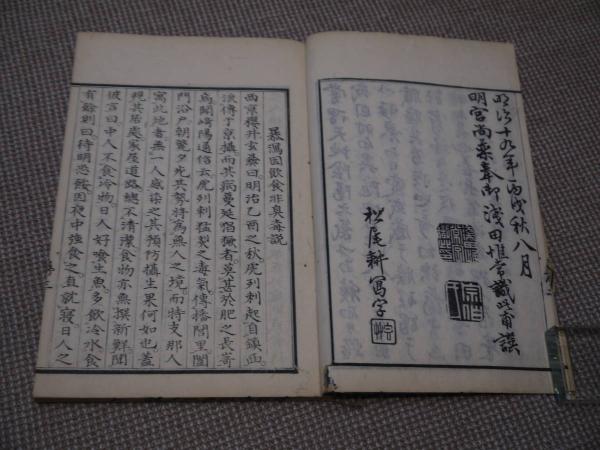 明治十九年丙戌秋八月
明宮尚薬奉御浅田惟常識此甫撰
松尾耕寫字
暴瀉因飲食非臭毒説
西京櫻井玄養曰明治乙酉之秋虎列刺起自鎮西
浪傳于京攝而其病蔓延猖獗者莫甚於肥之長嵜
烏閩崎陽通信云虎列刺猛裂之毒氣傳播閭里闔
門浴戸朝斃夕死其勢将為無人之境而特支那人
寓此地者無一人感染之其預防攝生果何如也蓋
視其居處家屋道路總不清潔食物亦無撰新鮮聞
彼言曰中人不食冷物日人好喰生魚多飲冷水食
有餘則曰待明恐餒因夜中強食之直就寢日人之